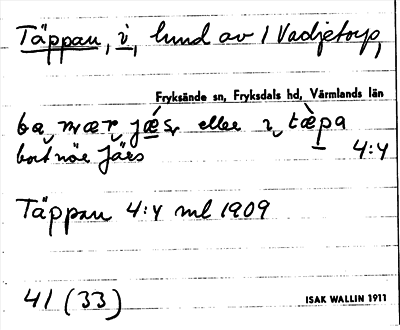 Täppan, i, lund av 1 Vadjetorp,
Fryksände sn, Fryksdals hd, Värmlands län
eller ɩ tæ̀pa
4:4
bort när Järs
Täppan 4:4 ml 1909
41 (33)
ISAK WALLIN 1911